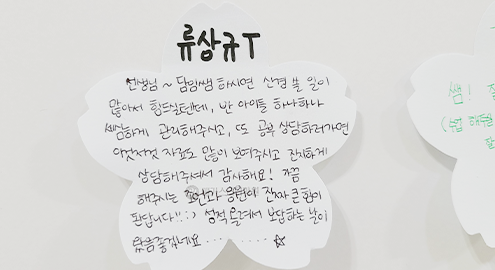 류상규T
선생님~ 담임쌤 하시면 신경 쓸 일이
많아서 힘드실텐데, 반 아이들 하나하나
세심하게 관리해주시고, 또 공부 상담하러가면
이것저것 자료도 많이 보여주시고 진지하게
상담해주셔서 감사해요! 가끔
해주시는 조언과 응원이 진짜 큰 힘이
된답니다!! :) 성적 올려서 보답하는 날이
왔음좋겠네요 ········ ☆
쌤!